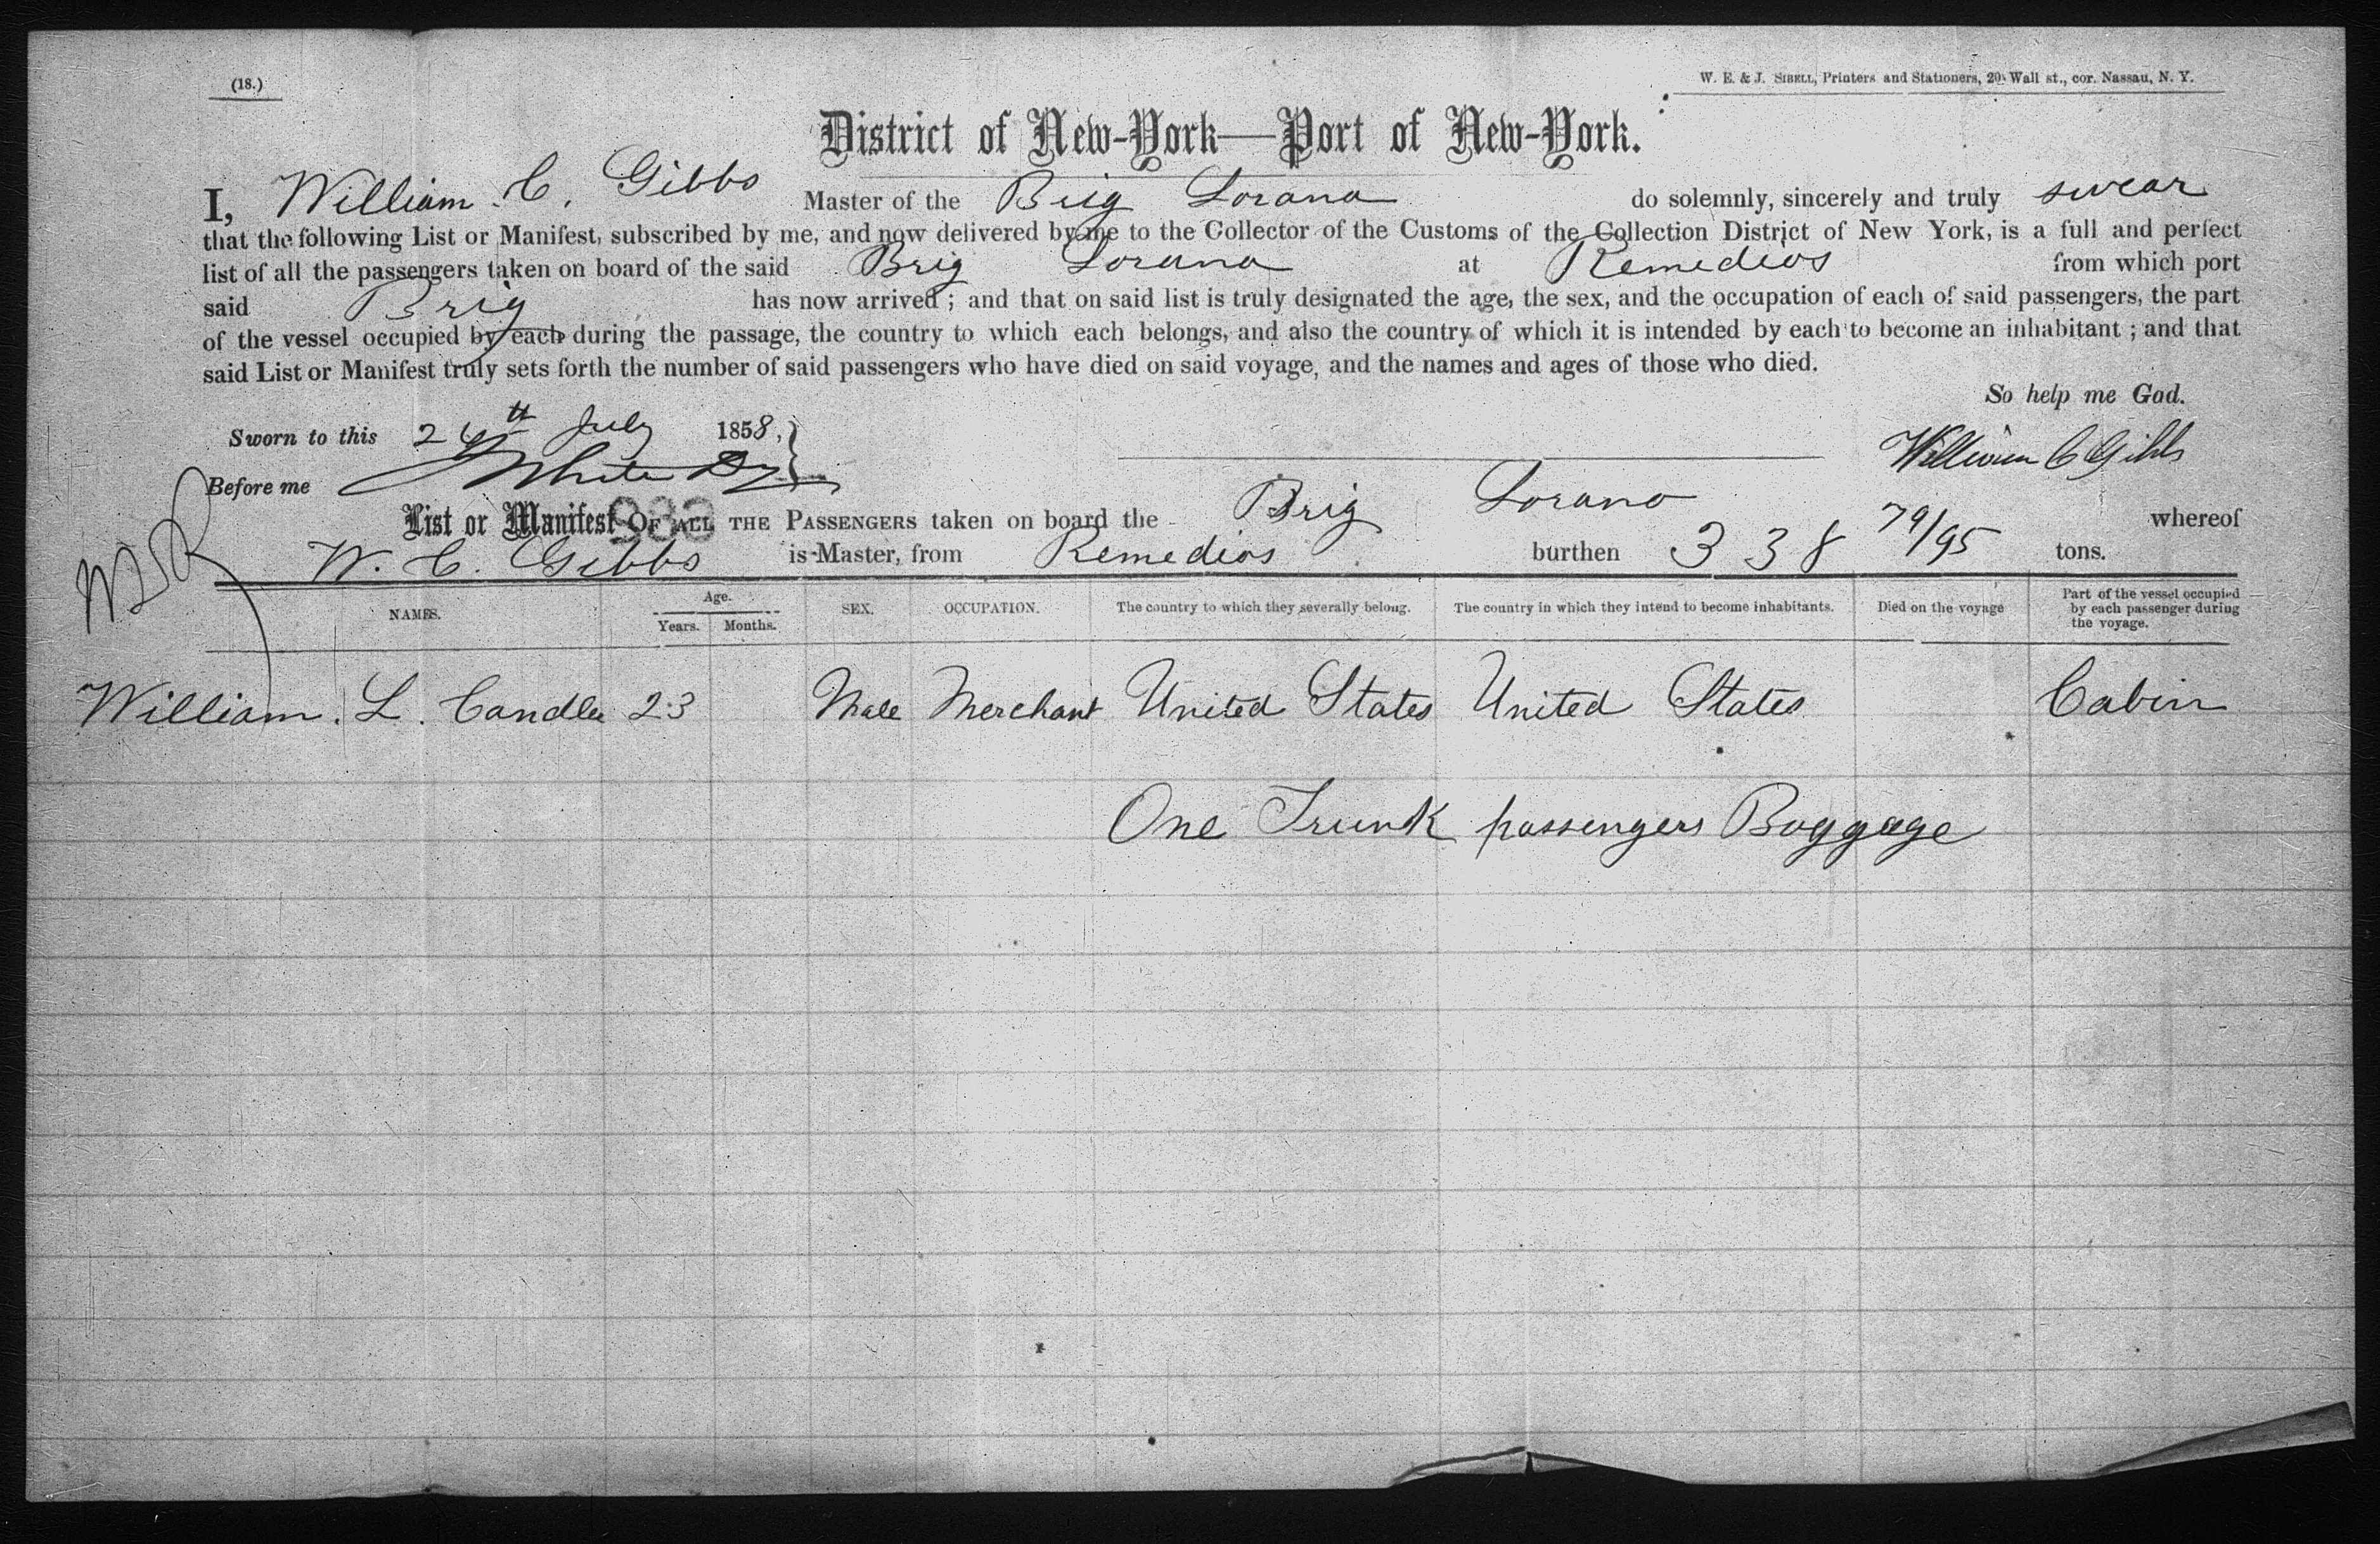 (18.)
W. E. & J. Sibell, Printers and Stationers, 20 Wall st., cor. Nassau, N. Y.
District of New-York—Port of New-York.
I, William. C. Gibbs Master of the Brig Lorana do solemnly, sincerely and truly swear
that the following List or Manifest, subscribed by me, and now delivered by me to the Collector of the Customs of the Collection District of New York, is a full and perfect
list of all the passengers taken on board of the said Brig Lorana at Remedios from which port
said Brig has now arrived; and that on said list is truly designated the age, the sex, and the occupation of each of said passengers, the part
of the vessel occupied by each during the passage, the country to which each belongs, and also the country of which it is intended by each to become an inhabitant; and that
said List or Manifest truly sets forth the number of said passengers who have died on said voyage, and the names and ages of those who died.
So help me God.
Sworn to this 26th July 1858,
William C Gibbs
Before me White
List or Manifest OF ALL THE PASSENGERS taken on board the Brig Lorana whereof
W. C. Gibbs is Master, from Remedios burthen 338 79/95 tons.
NAMES. Age. Years. Months. SEX. OCCUPATION. The country to which they severally belong. The country in which they intend to become inhabitants. Died on the voyage Part of the vessel occupied by each passenger during the voyage.
William. L. Candler 23 Male Merchant United States United States Cabin
One Trunk passengers Baggage